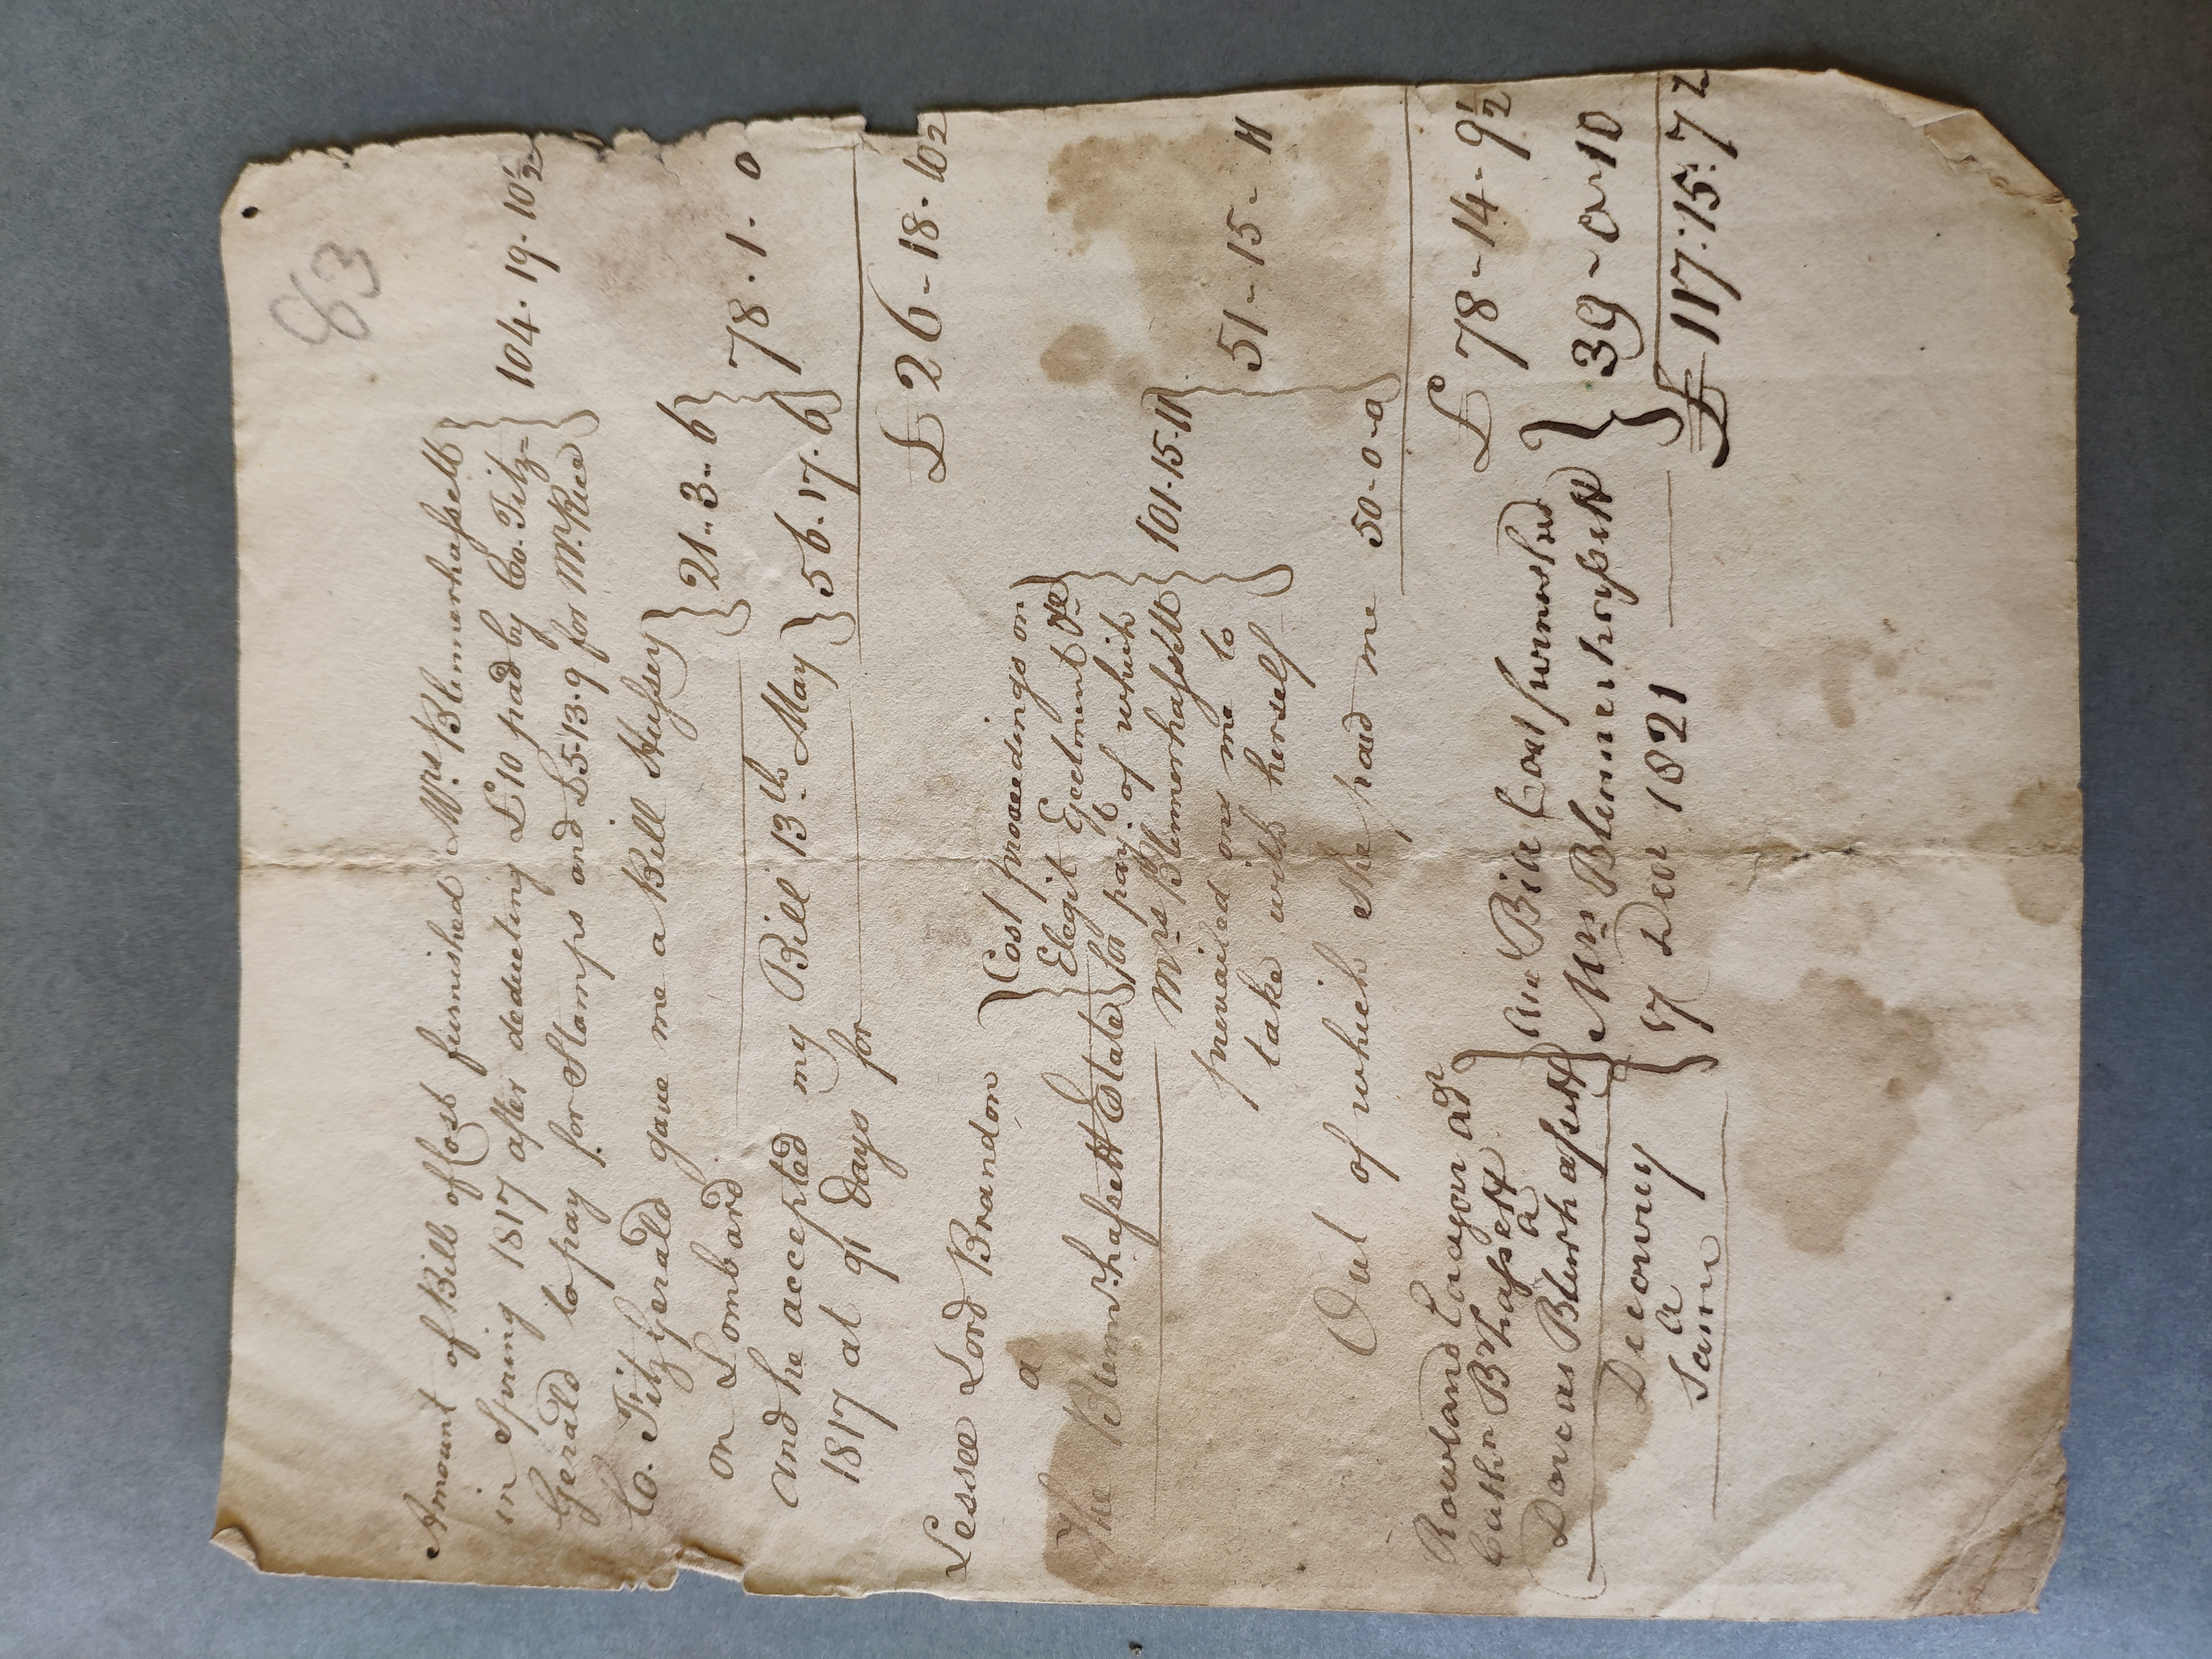 83
Amount of Bill of Cost furnished Mrs. Blennerhassett
in Spring 1817 after deducting £10 paid by Co. Fitz=
Gerald to pay for Stamps and £5.13.9 for Mr. Rice } 104.19.10½
Co. FitzGerald gave me a Bill Hussey
on Lombard } 21..3..6
and he accepted my Bill 13th May
1817 at 91 days for } 56.17.6 } 78.1.0
£26-18-10½
Lessee Lord Brandon
a
The Blennerhassett Estate
Cost proceedings on
Elegit Ejectment &c
for paymt. of which
Mrs Blennerhassett
prevailed on me to
take with herself } 101-15-11
Out of which she paid me 50-0-0 } 51-15-11
£78-14-9½
Rowland Eagar adr
Cathn B'hassett
a
Dorcas Blenrhassett
Discovery
a
Same
Bill Cost furnished
Mrs Blennerhassett
7 Decr 1821 } 39-0-10
£117:15:7½